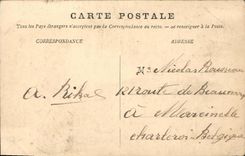 CARTE POSTALE
Tous les Pays étrangers n'acceptent pas la Correspondance au recto. — se renseigner à la Poste.
CORRESPONDANCE
ADRESSE
Mr Nicolas Rousseau
A. Rihal
Route de Beaumont
à Marcinelle
charleroi Belgique